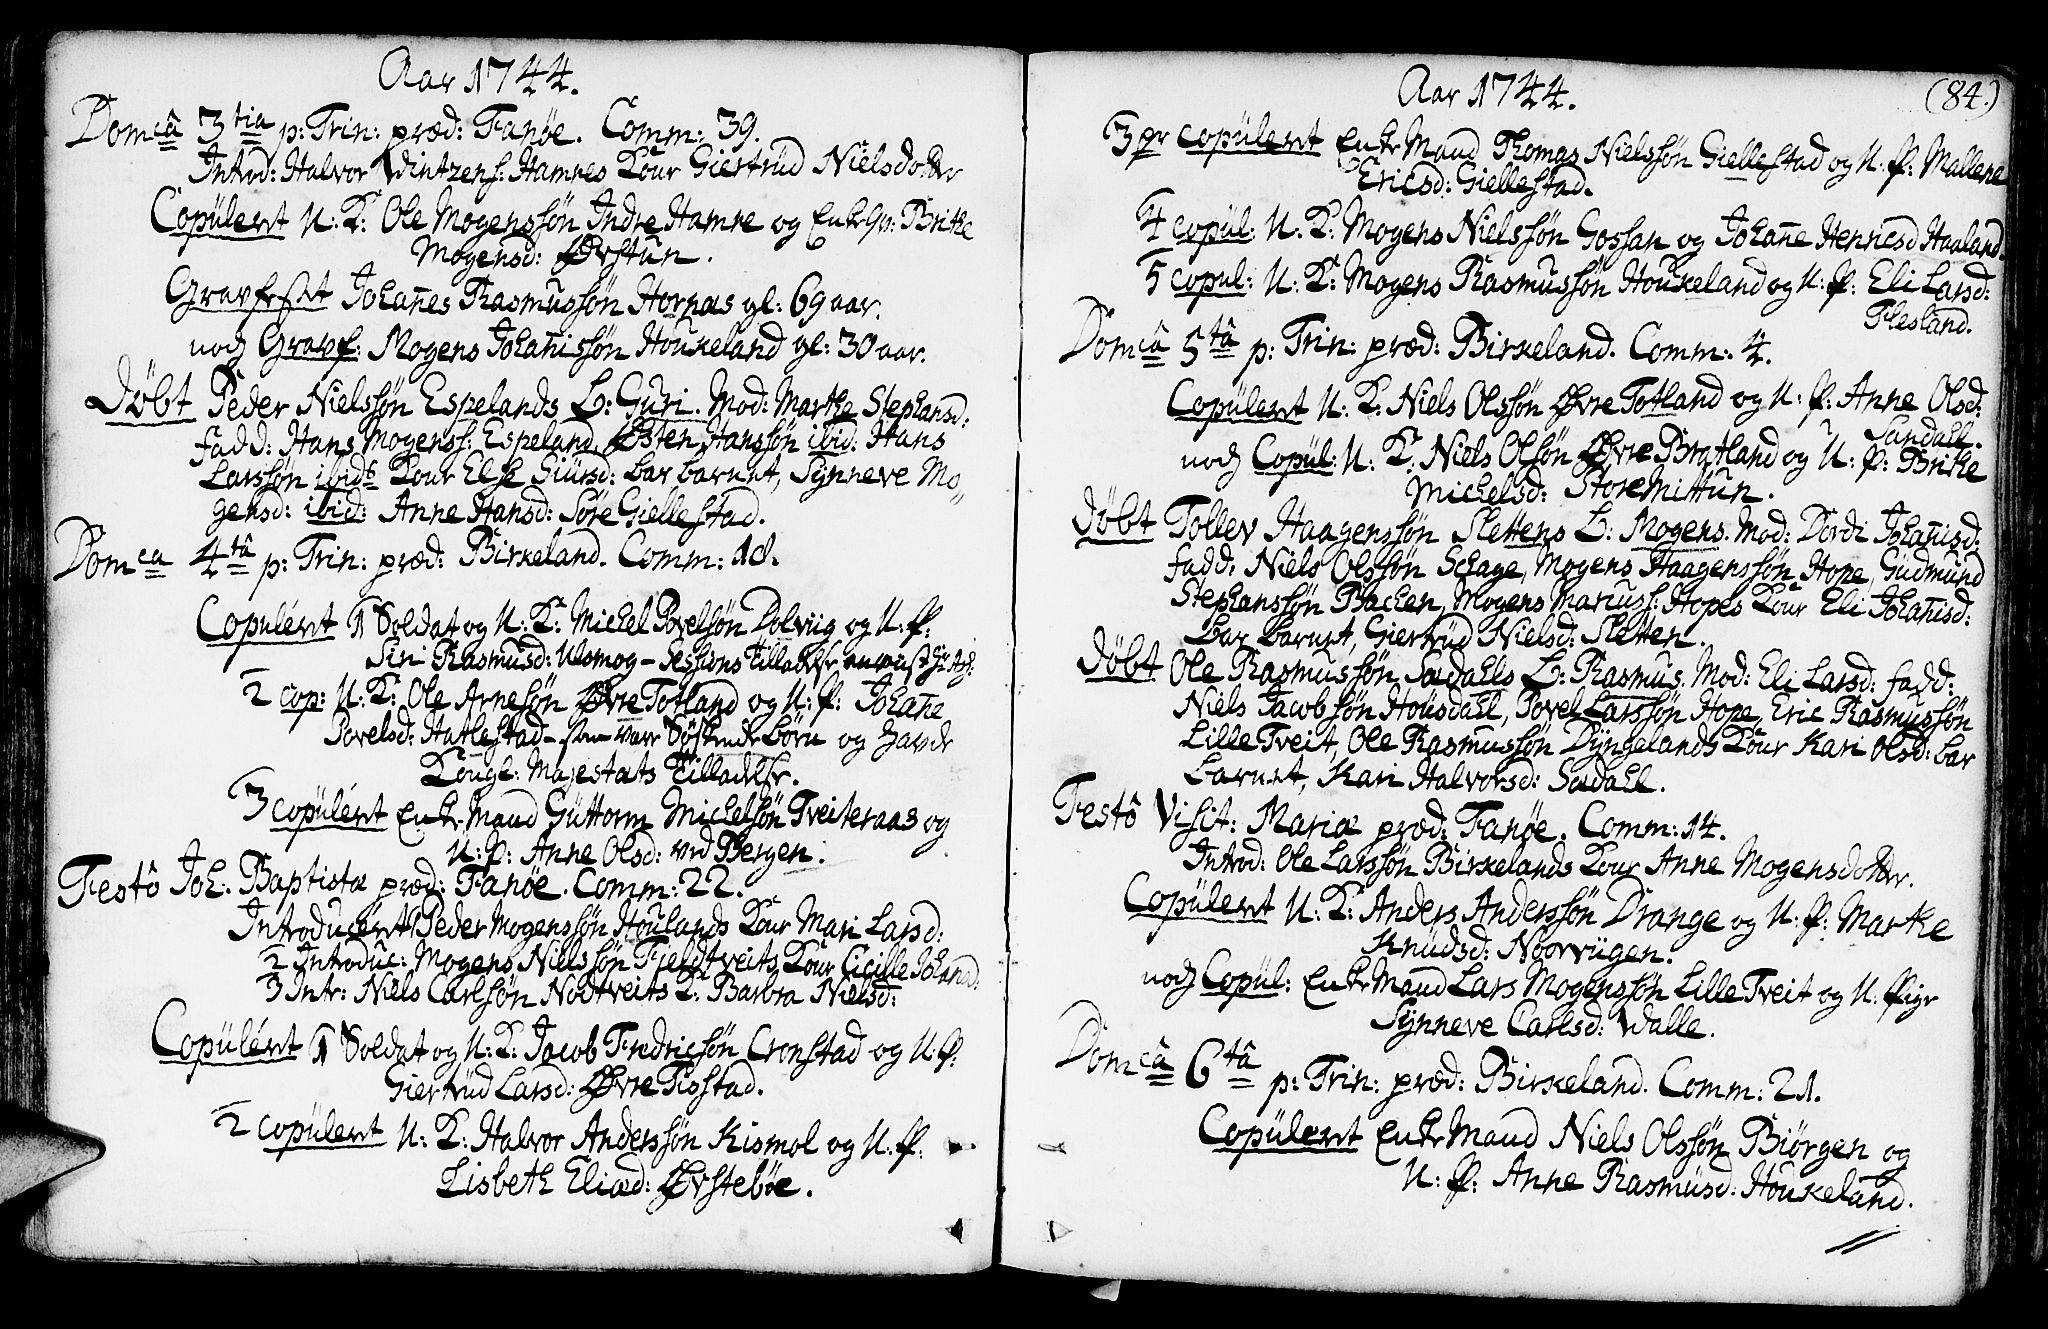 Aar 1744.
Domcâ 3tia p: Trin: præd: Fanøe. Comm: 39.
Introd: Halvor Vintzens: Hamres Kour Giertrud Nielsdotter
Copulert U: K: Ole Mogenssøn Indre Hamre og Enke Qv: Brithe
Mogensd: Øvstun.
Gravfest Johanes Rasmussøn Hornæs gl: 69 aar.
noch Gravf: Mogens Johanissøn Houkeland gl: 30 aar.
Døbt Peder Nielssøn Espelands B: Guri. Mod: Marthe Stephansd:
fadd: Hans Mogens: Espeland, Østen Hanssøn ibid: Hans
Larssøn ibids Kour Else Giursd: bar barnet, Synneve Mo-
gensd: ibid: Anne Hansd: Søre Giellestad.
Domca 4tâ p: Trin: præd: Birkeland. Comm: 18.
Copulert 1 Soldat og U: K: Michel Povelsøn Dolviig og U: P:
Siri Rasmusd: Usmog - Sessions Tilladelse
2 cop: U: K: Ole Arnesøn Øvre Totland og U: P: Johane
Povelsd: Hatlestad - som vare Søskende Børn og havde
Kongl: Majestæts Tilladelse.
3 copulert Enke Mand Guttorm Michelsøn Tveiteraas og
U: P: Anne Olsd: ved Bergen.
Festô Joh: Baptistæ præd: Fanøe. Comm: 22.
Introducert 1 Peder Mogenssøn Houlands Kour Mari Larsd:
2 Introduc: Mogens Nielssøn Fieldtveits Kour Cicille Johansd:
3 Intr: Niels Carlsøn Nodtveits K: Barbra Nielsd:
Copulert 1 Soldat og U: K: Jacob Fredricsøn Cronstad og U: P:
Giertrud Larsd: Øvre Tisstad.
2 copulert U: K: Halvor Anderssøn Kismol og U: P:
Lisbeth Eliæd: Øvstebøe.
Aar 1744. (84.)
3 copulert Enke Mand Thomas Nielssøn Giellestad og U: P: Mallene
Ericsd: Giellestad.
4 copul: U: K: Mogens Nielssøn Gossan og Johane Henricsd Haaland.
5 copul: U: K: Mogens Rasmussøn Houkeland og U: P: Eli Larsd:
Flesland.
Domcâ 5tâ p: Trin: præd: Birkeland. Comm: 4.
Copulert U: K: Niels Olssøn Øvre Totland og U: P: Anne Olsd:
Sandall.
noch Copul: U: K: Niels Olsøn Øvre Bratland og U: P: Brithe
Michelsd: Store Mittun.
Døbt Tollev Haagenssøn Slettens B: Mogens. Mod: Dordi Johanisd:
fadd: Niels Olssøn Schage, Mogens Haagenssøn Hope, Gudmund
Stephanssøn Bachen, Mogens Marius: Hopes Kour Eli Johanisd:
bar barnet, Giertrud Nielsd: Sletten.
Døbt Ole Rasmussøn Sædahls B: Rasmus. Mod: Eli Larsd: fadd:
Niels Jacobsøn Housdahl, Povel Larssøn Hope, Eric Rasmussøn
Lille Tveit, Ole Rasmussøn Dyngelands Kour Kari Olsd: bar
barnet, Kari Halvorsd: Sædahl.
Festô Visit: Mariæ præd: Fanøe. Comm: 14.
Introd: Ole Larssøn Birkelands Kour Anne Mogensdotter.
Copulert U: K: Anders Anderssøn Drange og U: P: Marthe
Knudsd: Noorvugen.
noch Copul: Enke Mand Lars Mogenssøn Lille Tveit og U: Pige
Synneve Carlsd: Walle.
Domcâ 6tâ p: Trin: præd: Birkeland. Comm: 21.
Copulert Enke Mand Niels Olssøn Biørgen og
U: P: Anne Rasmusd: Houkeland.